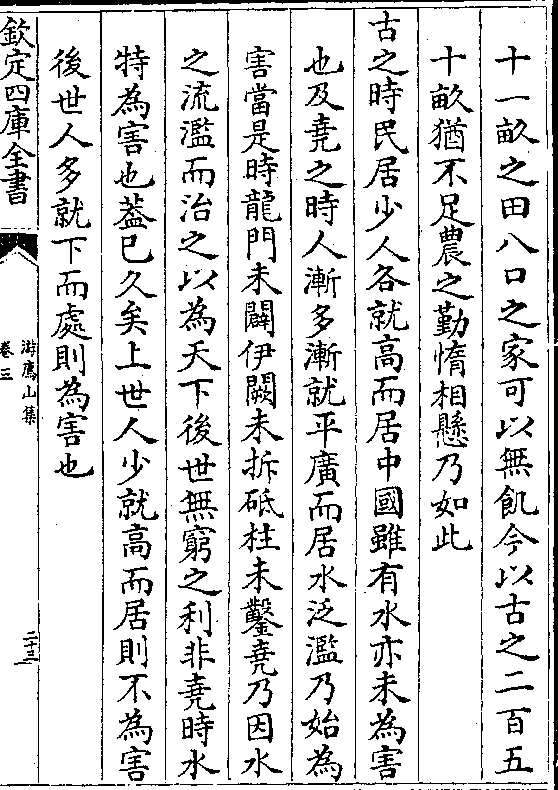 十一畝之田八口之家可以無飢今以古之二百五
十畝猶不足農之勤惰相懸乃如此
古之時民居少人各就高而居中國雖有水亦未為害
也及堯之時人漸多漸就平廣而居水泛濫乃始為
害當是時龍門未闢伊闕未拆砥柱未鑿堯乃因水
之流濫而治之以為天下後世無窮之利非堯時水
特為害也葢已久矣上世人少就高而居則不為害
後世人多就下而處則為害也
欽定四庫全書
游廌山集
卷三
二十三